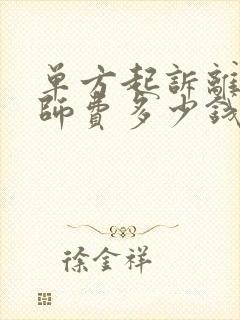 單方起訴離
師費多少錢
徐金祥